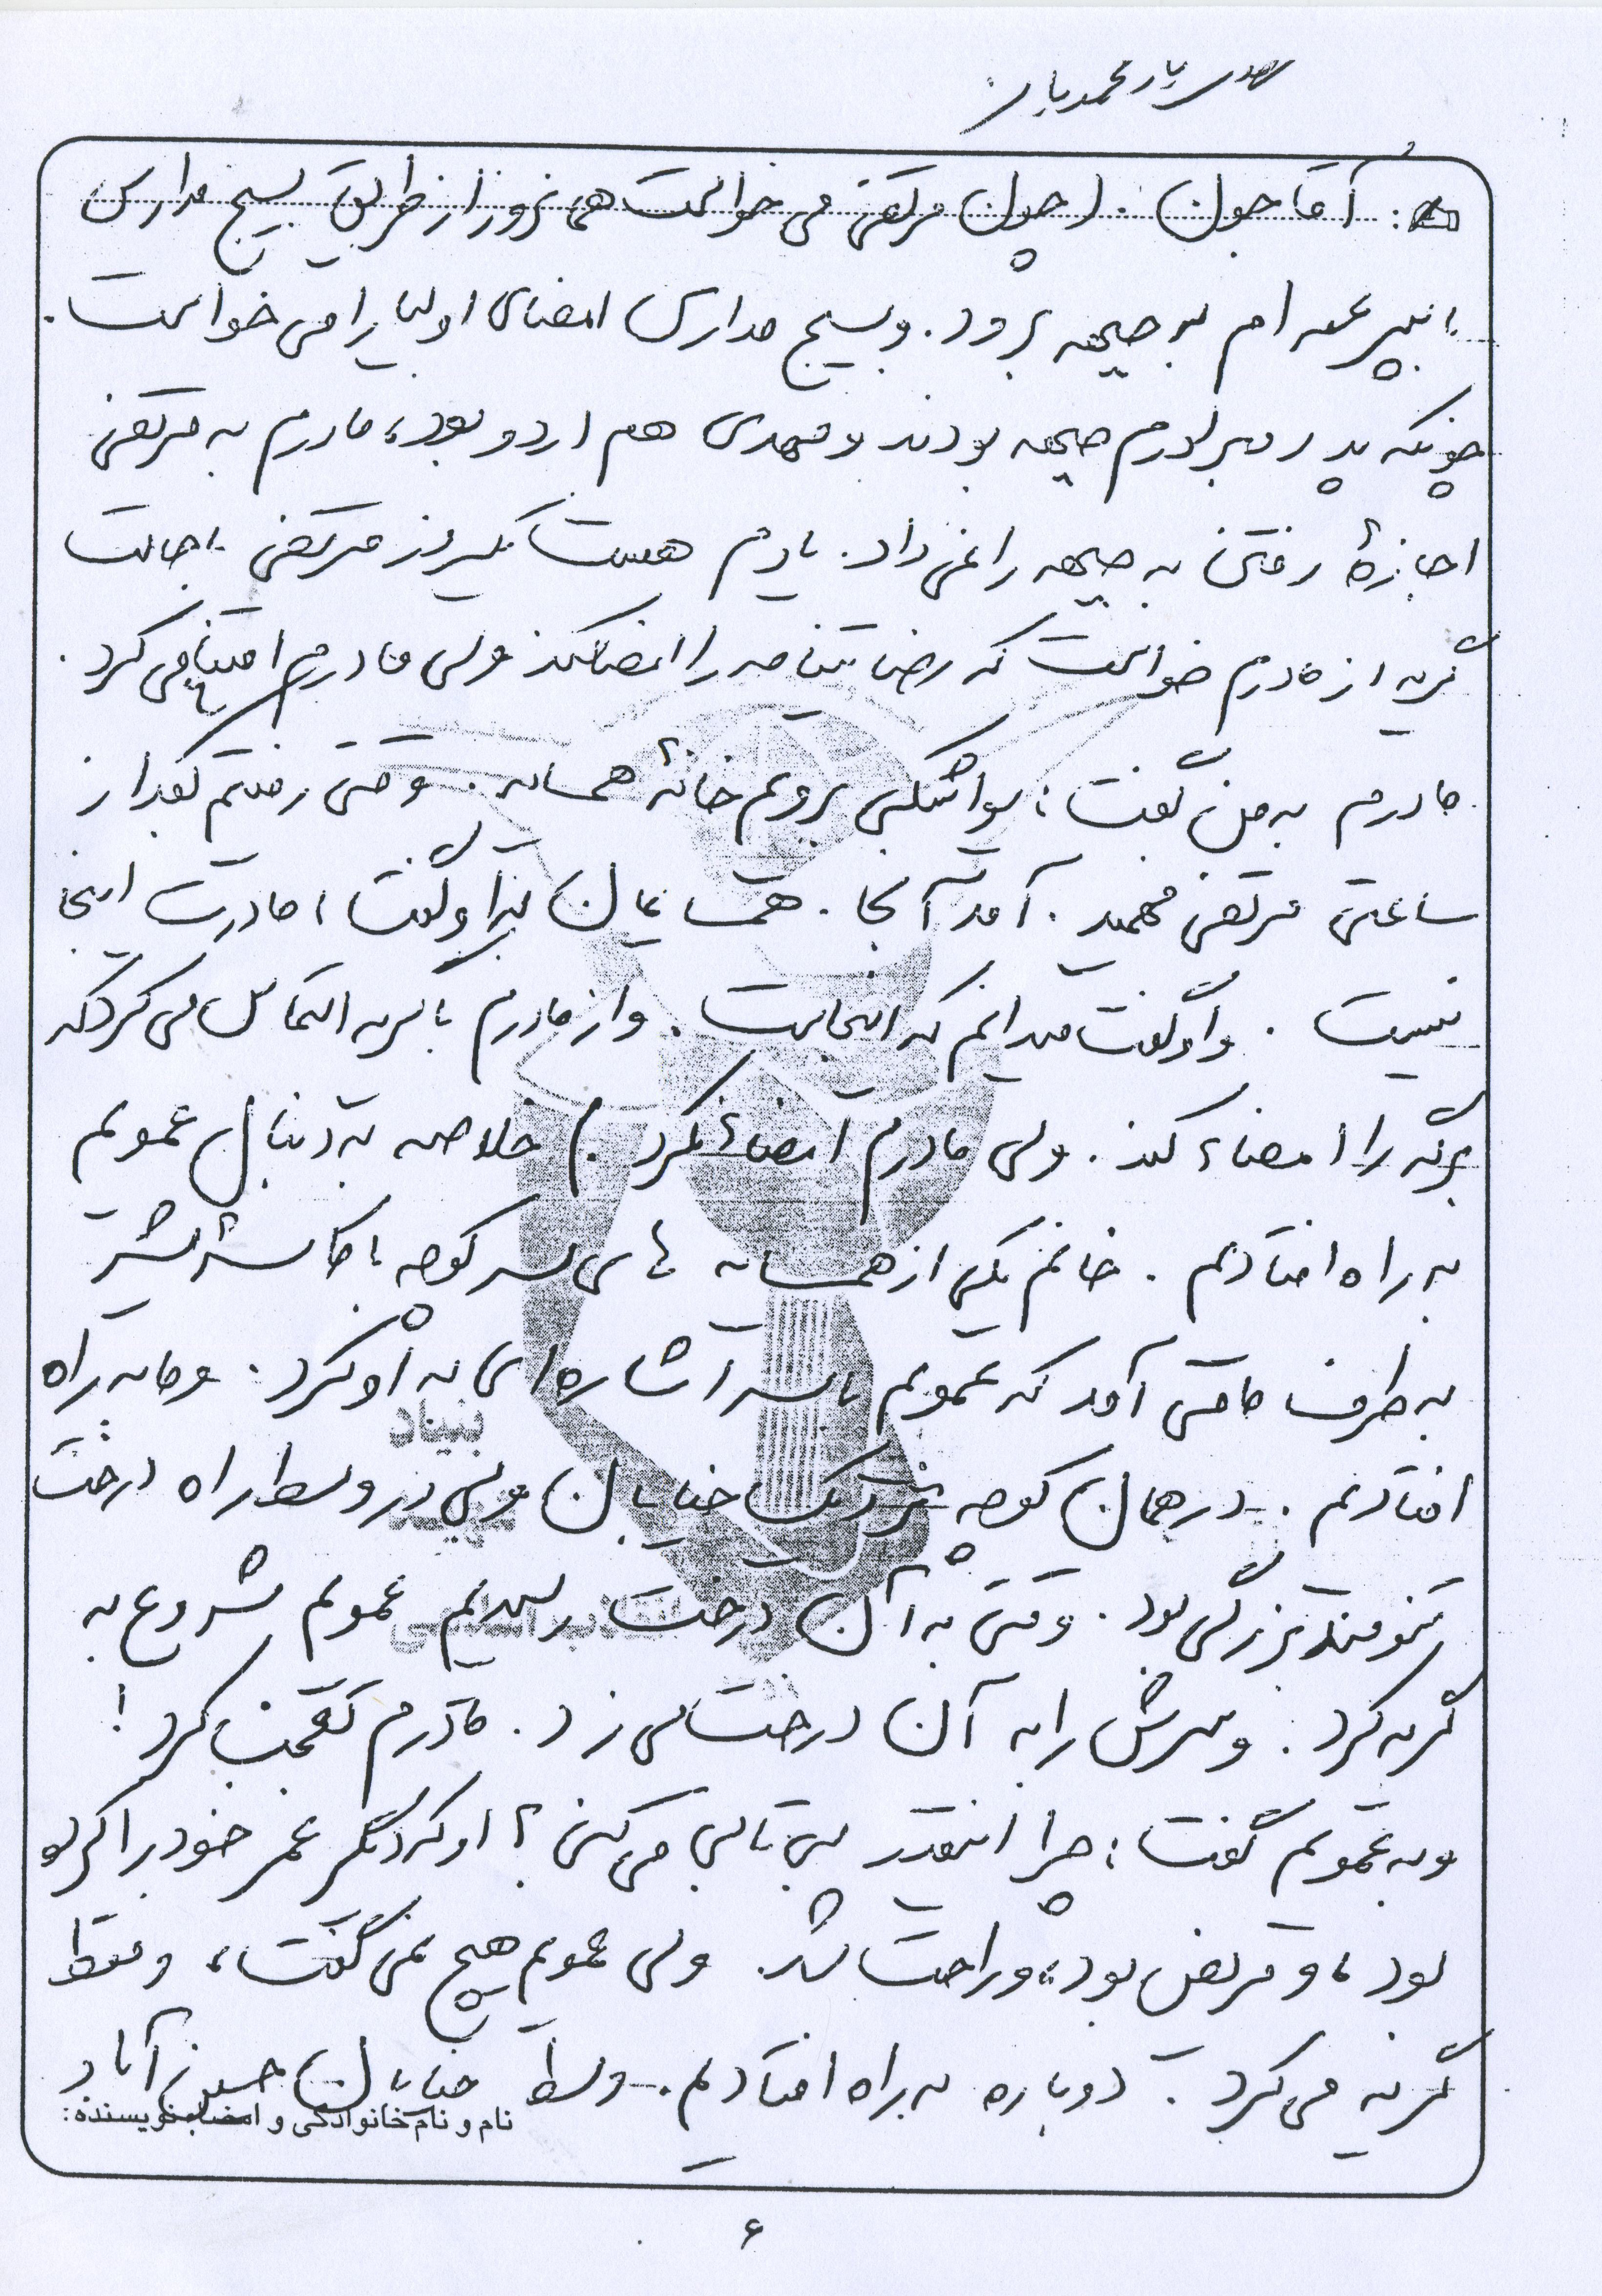 یارمحمدیان
آقا جون. (چون مرتضی می خواست همانروز از طریق بسیج مدارس
با پسر عمه ام به جبهه برود. و بسیج مدارس امضای اولیا را می خواست.
چونکه پدر و برادرم جبهه بودند و مهدی هم اردو بود، مادرم به مرتضی
اجازهٔ رفتن به جبهه را نمی داد. یادم هست یکروز مرتضی باحالت
گریه از مادرم خواست که رضایتنامه را امضا کند ولی مادرم امتناع می کرد.
مادرم به من گفت: یواشکی برویم خانهٔ همسایه. وقتی رفتیم بعد از
ساعتی مرتضی فهمید. آمد آنجا. همسایمان به او گفت، مادرت اینجا
نیست. و او گفت میدانم که اینجاست. و از مادرم با گریه التماس می کرد که
برگه را امضاء کند. ولی مادرم امضاء نکرد.) خلاصه به دنبال عمویم
به راه افتادیم. خانم یکی از همسایه های سر کوچه با
به طرف ما می آمد که عمویم با سر اشاره ای به او کرد. و ما به راه
افتادیم. در همان کوچه نزدیک خیابان ولی در وسط راه درخت
تنومند بزرگی بود. وقتی به آن درخت رسیدیم عمویم شروع به
گریه کرد. و سرش را به آن درخت می زد. مادرم تعجب کرد!
و به عمویم گفت: چرا اینقدر بی تابی می کنی؟ او که دیگر عمر خود را کرده
بود، و مریض بود، و راحت شد. ولی عمویم هیچ نمی گفت، و فقط
گریه می کرد. دوباره به راه افتادیم. وسط خیابان حسین آباد
نام و نام خانوادگی و امضاء نویسنده:
بنیاد
شهید
انقلاب اسلامی
۶